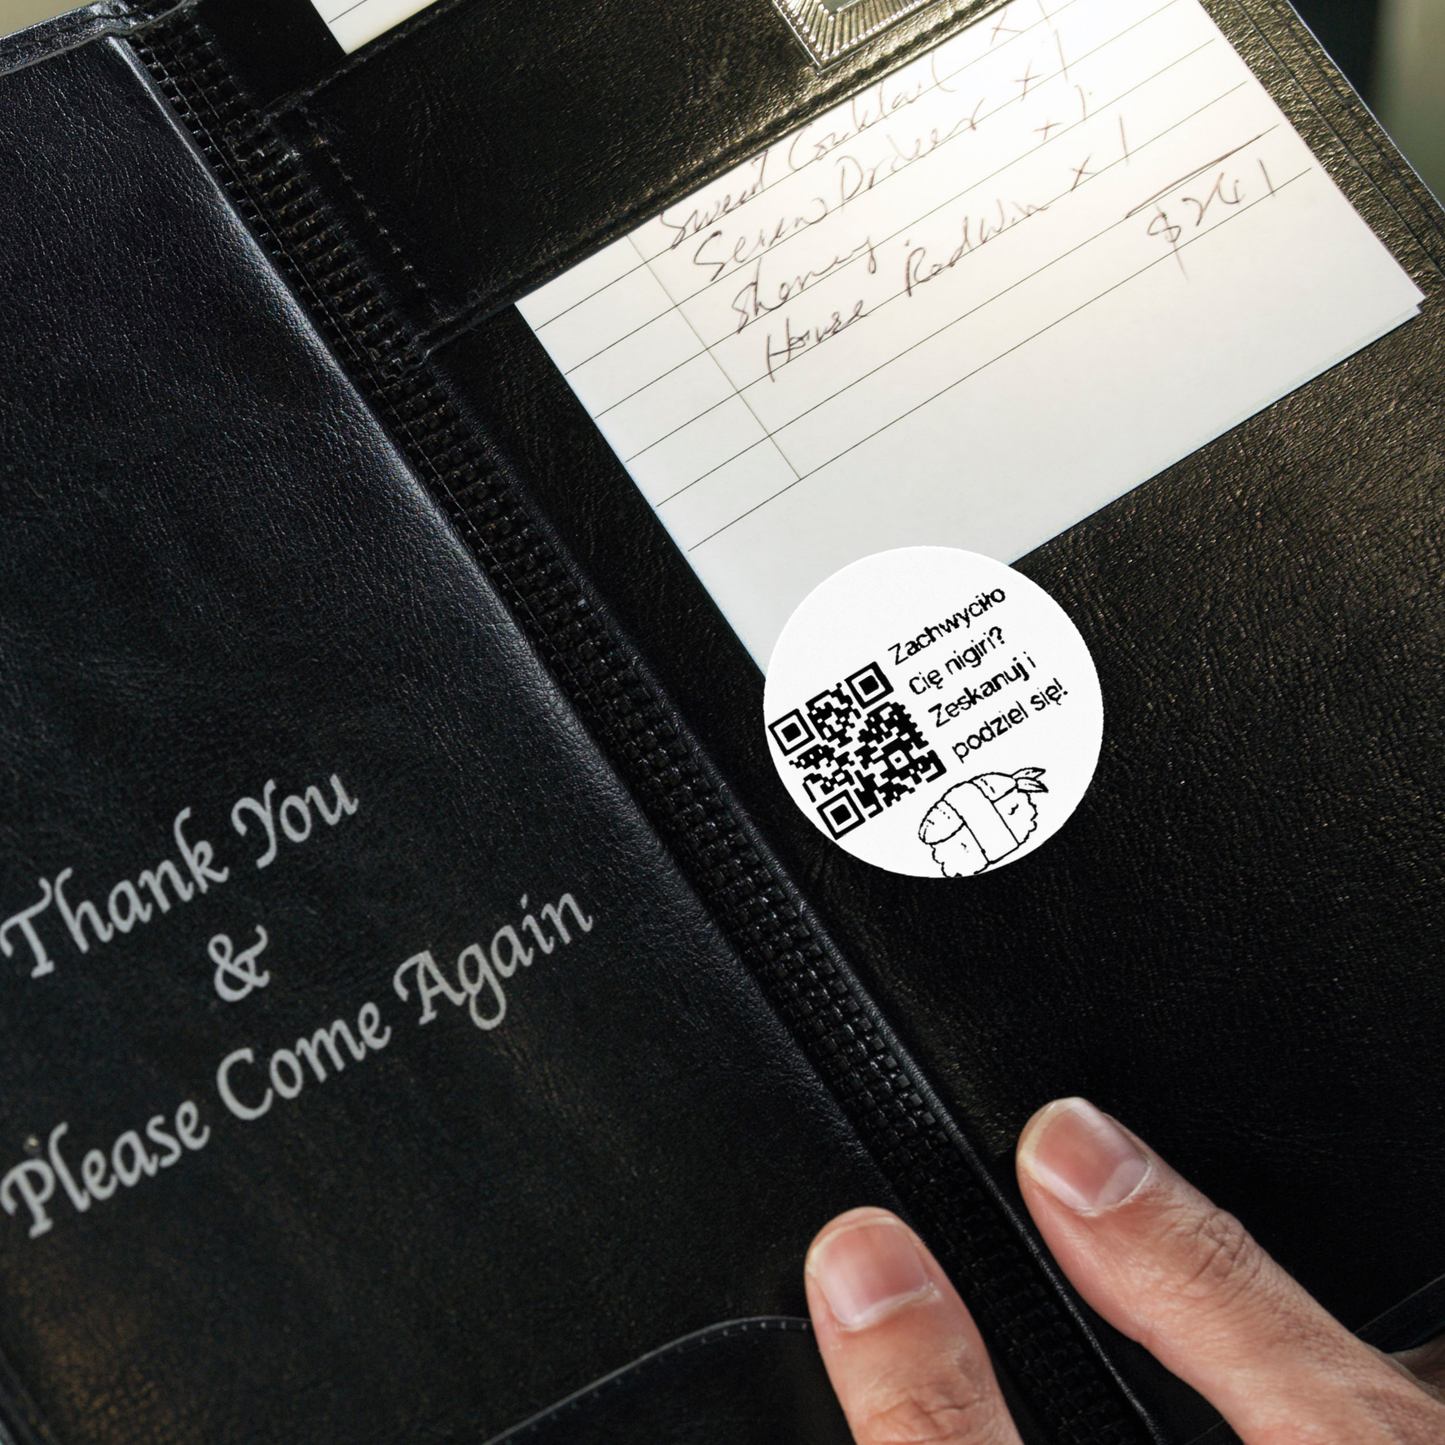 Sweet Cocktail x 1
Screw Driver x 1
Sherry x 1
House Red Win x 1
$241
Zachwyciło
Cię nigiri?
Zeskanuj i
podziel się!
Thank You
&
Please Come Again